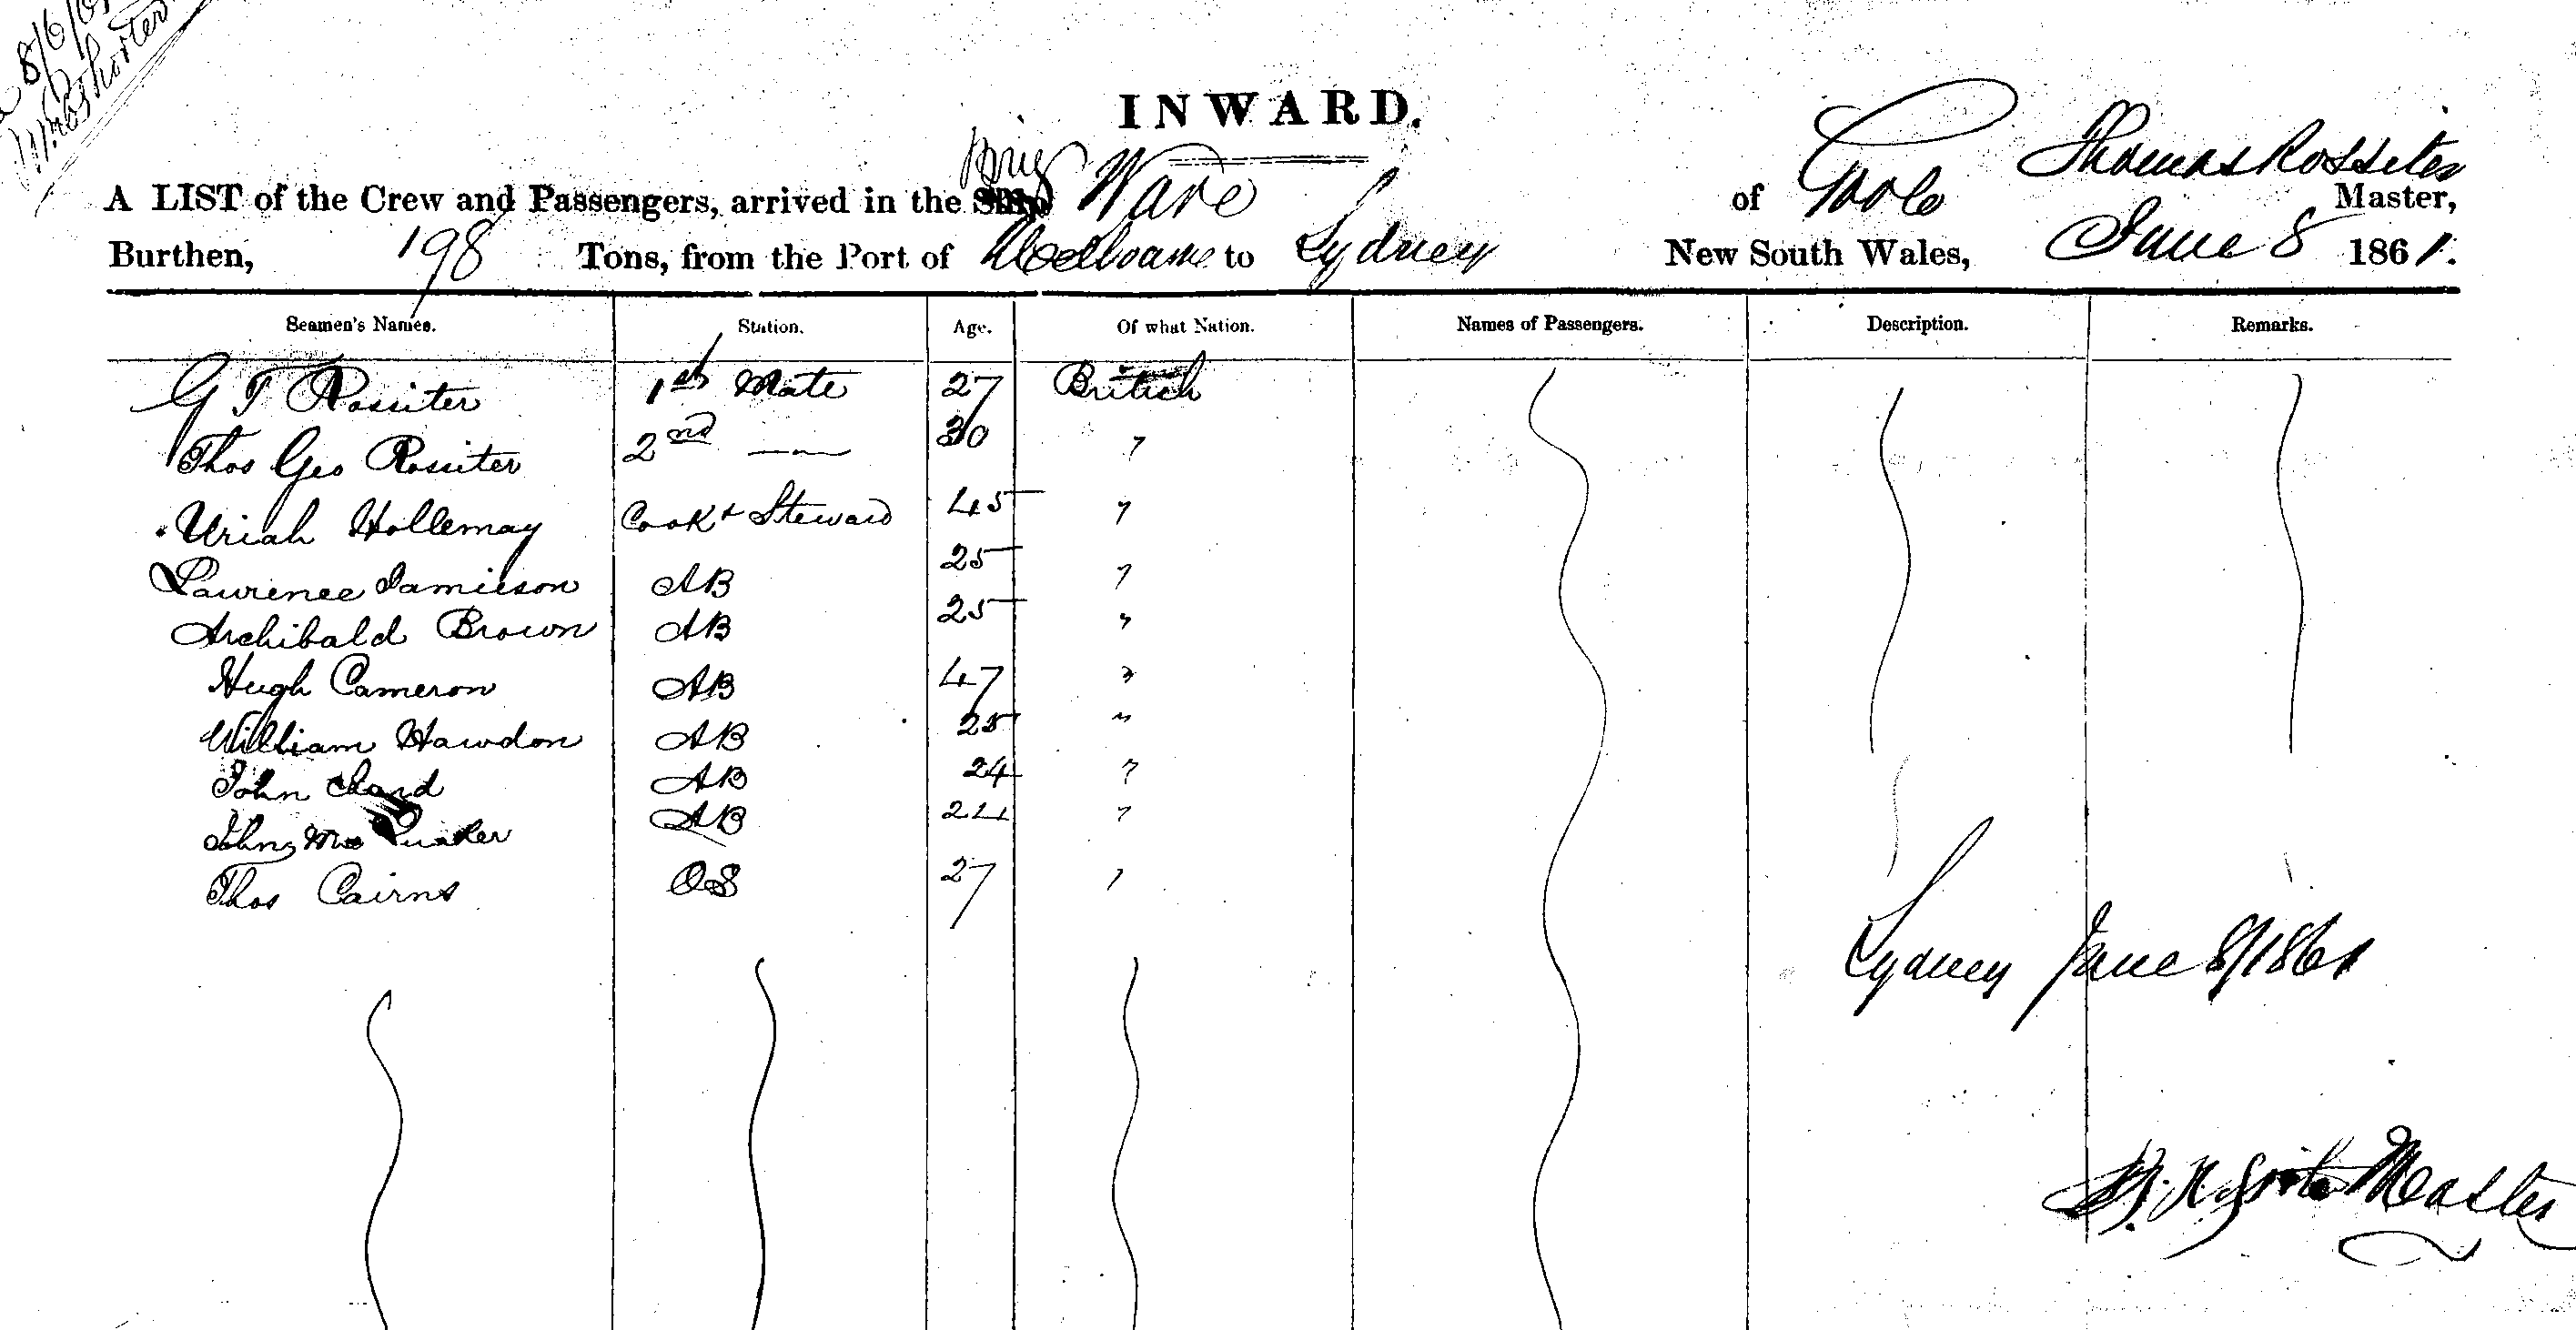 8/6/61
INWARD.
A LIST of the Crew and Passengers, arrived in the Brig Wave of Poole Thomas Rossiter Master,
Burthen, 198 Tons, from the Port of Melbourne to Sydney New South Wales, June 8 1861.
Seamen's Names. Station. Age. Of what Nation. Names of Passengers. Description. Remarks.
G T Rossiter 1st Mate 27 British
Thos Geo Rossiter 2nd — 30 "
Uriah Hollemay Cook & Steward 45 "
Lawrence Jamieson AB 25 "
Archibald Brown AB 25 "
Hugh Cameron AB 47 "
William Hawdon AB 25 "
John Chard AB 24 "
John AB 24 "
Thos Cairns OS 27 "
Sydney June 8/1861
Master